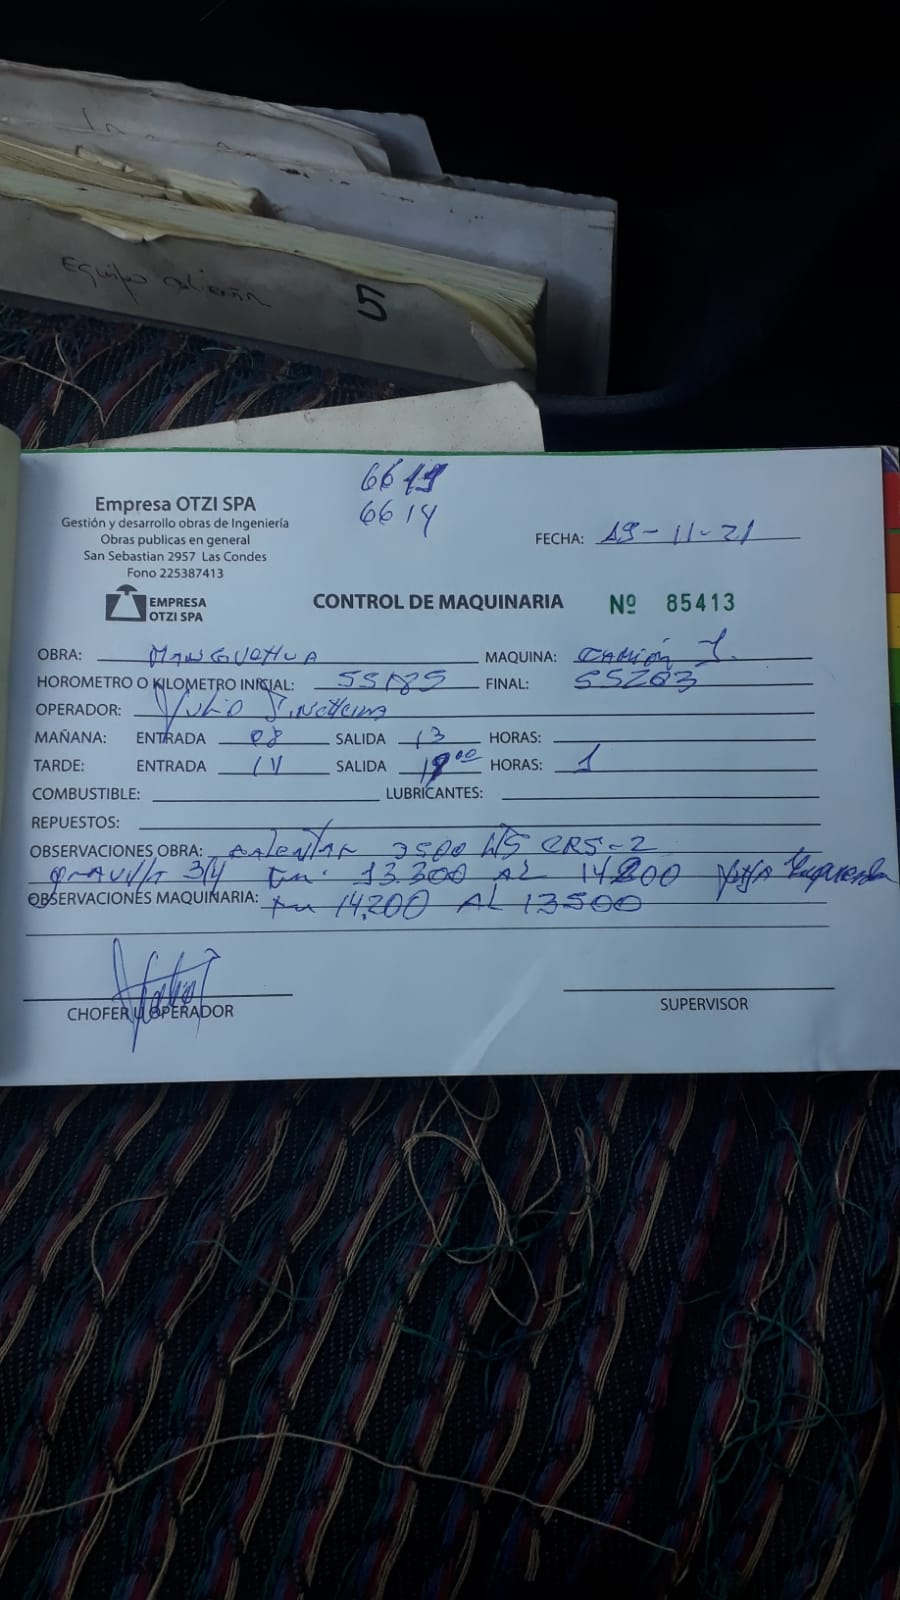 Equipo
5
6619
6614
Empresa OTZI SPA
Gestión y desarrollo obras de Ingeniería
Obras publicas en general
San Sebastian 2957 Las Condes
Fono 225387413
EMPRESA
OTZI SPA
FECHA: 19-11-21
CONTROL DE MAQUINARIA Nº 85413
OBRA: MANGUEHUA MAQUINA: CAMIÓN 1.
HOROMETRO O KILOMETRO INICIAL: 55185 FINAL: 55203
OPERADOR: Julio
MAÑANA: ENTRADA 08 SALIDA 13 HORAS:
TARDE: ENTRADA 14 SALIDA 19⁰⁰ HORAS: 1
COMBUSTIBLE: LUBRICANTES:
REPUESTOS:
OBSERVACIONES OBRA: CALENTAR 3500 LTS CRS-2
GRAVILLA 3/4 Km. 13.300 AL 14200 PISTA Izquierda
OBSERVACIONES MAQUINARIA: Km 14.200 AL 13500
CHOFER U OPERADOR
SUPERVISOR